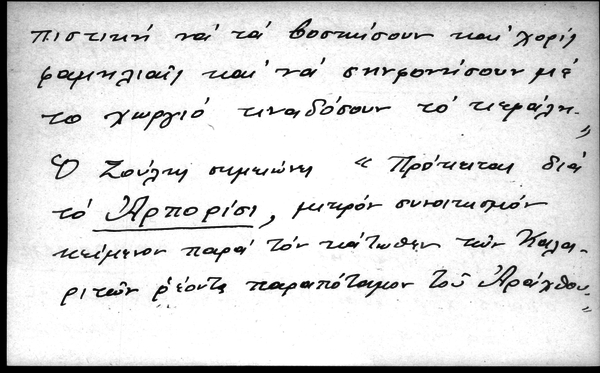 πιστική νά τά βοσκίσουν καί χορίς
φαμηλιαῖς καί νά σηνφονίσουν μέ
το χωργιό κιναδόσουν τό κεφάλη.»
Ὁ Ζούλης σημειώνη «Πρόκειται διά
τό Ἀρπορίσι, μικρόν συνοικισμόν
κείμενον παρά τόν κάτωθεν τῶν Καλα-
ριτῶν ῥέοντα παραπόταμον τοῦ Ἀράχθου.»